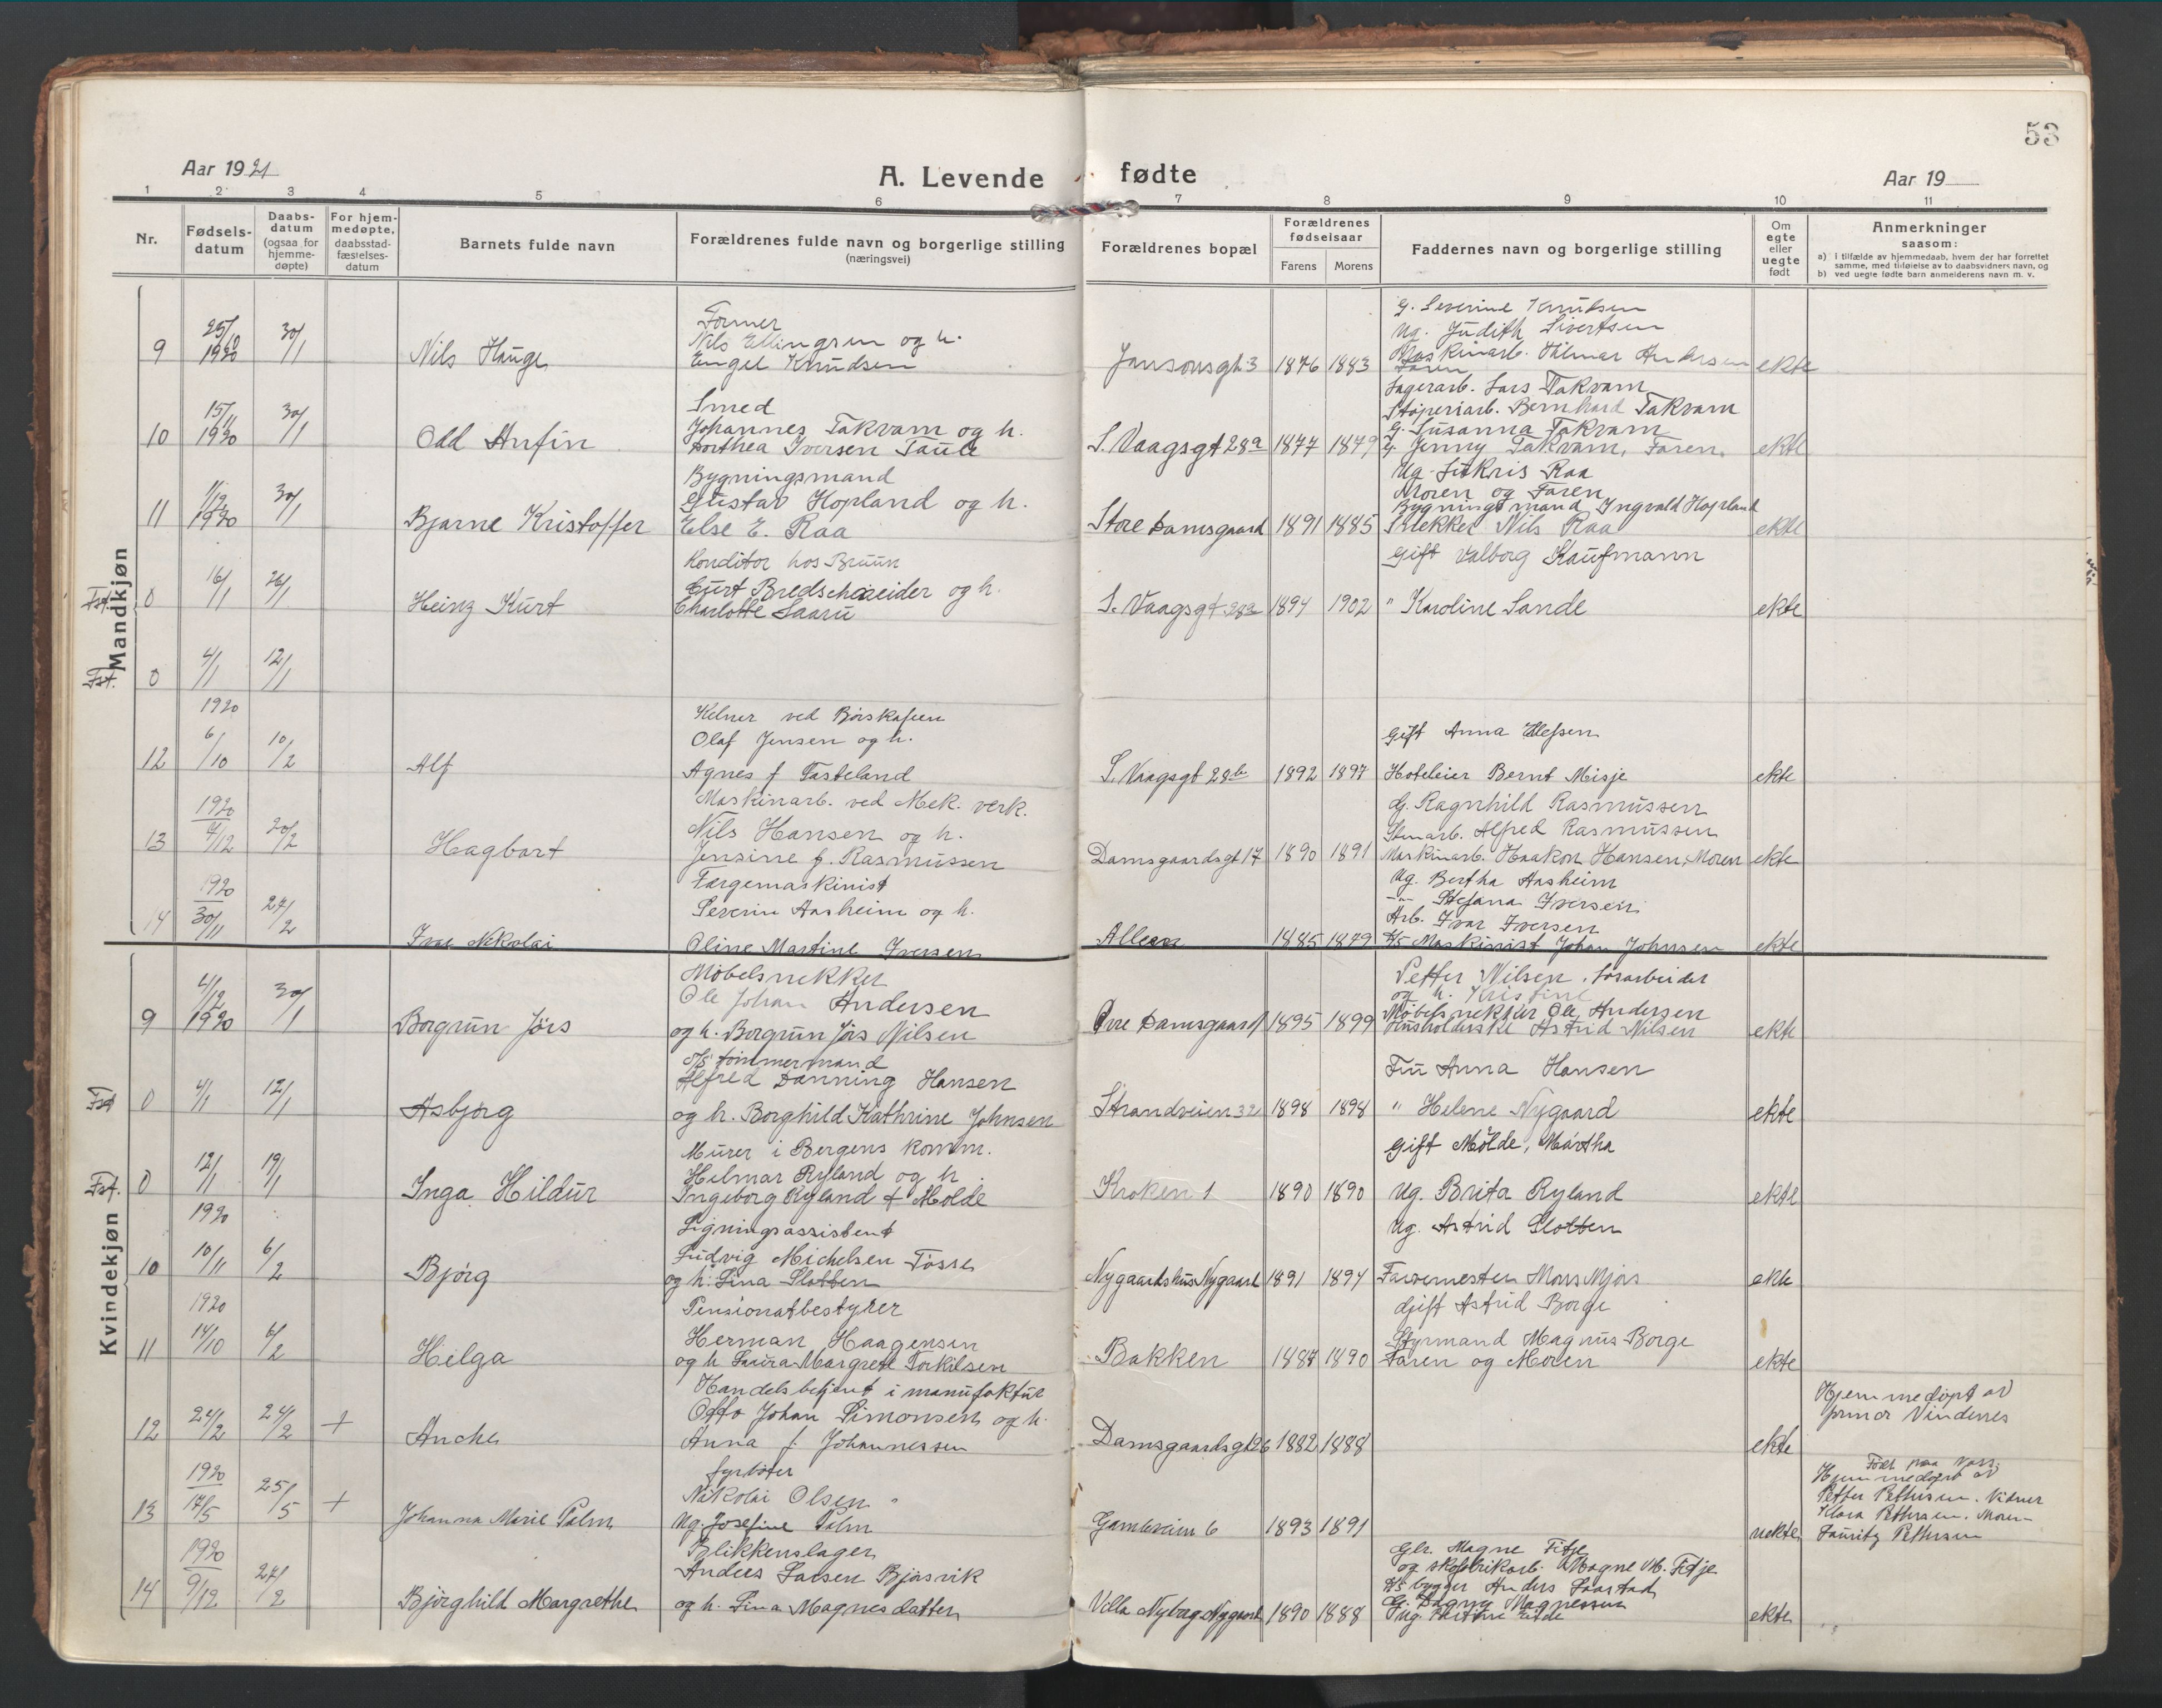 53
Aar 1921
A. Levende fødte
Aar 19
1 2 3 4 5 6 7 8 9 10 11
Nr.
Fødselsdatum
Daabsdatum (ogsaa for hjemmedøpte)
For hjemmedøpte, daabsstadfæstelsesdatum
Barnets fulde navn
Forældrenes fulde navn og borgerlige stilling (næringsvei)
Forældrenes bopæl
Forældrenes fødselsaar
Farens Morens
Faddernes navn og borgerlige stilling
Om egte eller uegte født
Anmerkninger saasom:
a) i tilfælde av hjemmedaab, hvem der har forrettet samme, med tilføielse av to daabsvidners navn, og
b) ved uegte fødte barn anmelderens navn m. v.
Mandkjøn
9 25/10 1920 30/1
Nils Hauge
Former
Nils Ellingsen og h.
Engel Knudsen
Jansonsgt 3 1876 1883
G. Severine Knudsen
Ug. Judith Sivertsen
Maskinarb. Hilmar Andersen
Faren
ekte
10 15/11 1920 30/1
Odd Anfin
Smed
Johannes Takvam og h.
Dorthea Iversen Taule
S. Vaagsgt 28a 1877 1879
Lagerarb. Lars Takvam
Støperiarb. Bernhard Takvam
G. Susanna Takvam
G. Jenny Takvam, Faren.
ekte
11 1/12 1920 30/1
Bjarne Kristoffer
Bygningsmand
Gustav Hopland og h.
Else E. Raa
Store Damsgaard 1891 1885
Ug. Raa
Moren og Faren
Bygningsmand Ingvald Hopland
Snekker Nils Raa
ekte
Fst. 0 16/1 26/1
Heinz Kurt
Konditor hos Bruun
Curt Bredschneider og h.
Charlotte Saaru
S. Vaagsgt 28a 1894 1902
Gift Valborg Kaufmann
" Karoline Sande
ekte
Fst. 0 4/1 12/1
12 1920 6/10 10/2
Alf
Kelner ved Børskafeen
Olaf Jensen og h.
Agnes f Tasteland
S. Vaagsgt 28b 1892 1897
Gift Anna
Hoteleier Bernt Misje
ekte
13 1920 4/12 20/2
Hagbart
Maskinarb. ved Mek. verk.
Nils Hansen og h.
Jensine f. Rasmussen
Damsgaardsgt 17 1890 1891
G. Ragnhild Rasmussen
Stenarb. Alfred Rasmussen
Maskinarb. Haakon Hansen, Moren
ekte
14 1920 30/11 27/2
Ivar Nikolai
Færgemaskinist
Severin Aasheim og h.
Oline Martine Iversen
Alleen 1885 1879
Ug. Bertha Aasheim
-"- Stefana Iversen
Arb. Ivar Iversen
D/S Maskinist Johan Johnsen
ekte
Kvindekjøn
9 4/12 1920 30/1
Borgrun Jørs
Møbelsnekker
Ole Johan Andersen
og h. Borgrun Jørs Nilsen
Øvre Damsgaard 1895 1899
Petter Nilsen, forarbeider
og h. Kristine
Møbelsnekker Ole Andersen
Husholderske Astrid Nilsen
ekte
Fst 0 4/1 12/1
Asbjørg
D/S tømmermand
Alfred Danning Hansen
og h. Borghild Kathrine Johnsen
Strandveien 32 1898 1898
Fru Anna Hansen
" Helene Nygaard
ekte
Fst. 0 12/1 19/1
Inga Hildur
Murer i Bergens komm.
Hilmar Ryland og h.
Ingeborg Ryland f Molde
Kroken 1 1890 1890
Gift Mölde, Martha
Ug. Brita Ryland
ekte
10 1920 10/11 6/2
Bjørg
Ligningsassistent
Ludvig Michelsen Tosse
og h. Lina Slotten
Nygaardshus Nygaard 1891 1894
Ug. Astrid Slotten
Farvermester Mons Mjøs
ekte
11 1920 14/10 6/2
Helga
Pensionatbestyrer
Herman Haagensen
og h Laura Margrete Torkilsen
Bakken 1887 1890
Gift Astrid Borge
Styrmand Magnus Borge
Faren og Moren
ekte
12 24/2 24/2 +
Anche
Handelsbetjent i manufaktur
Otto Johan Simonsen og h.
Anna f. Johannessen
Damsgaardsgt 26 1882 1888
ekte
Hjemmedøpt av
primor Vindenes
13 1920 17/5 25/5 +
Johanna Marie Palm
fyrbøter
Nikolai Olsen
Ug. Josefine Palm
Gamleveien 6 1893 1891
uekte
Født paa Voss.
Hjemmedøpt av
Petter Pettersen. Vidner
Klara Pettersen. Moren
Lauritz Pettersen
14 1920 9/12 27/2
Bjørghild Margrethe
Blikkenslager
Anders Larsen Bjørsvik
og h. Lina Magnesdatter
Villa Nyborg Nygaard 1890 1888
Glr. Magne Fitje
og skofabrikarb. Magne M. Fitje
Anders Saarstad
G. Dagny Magnessen
ekte